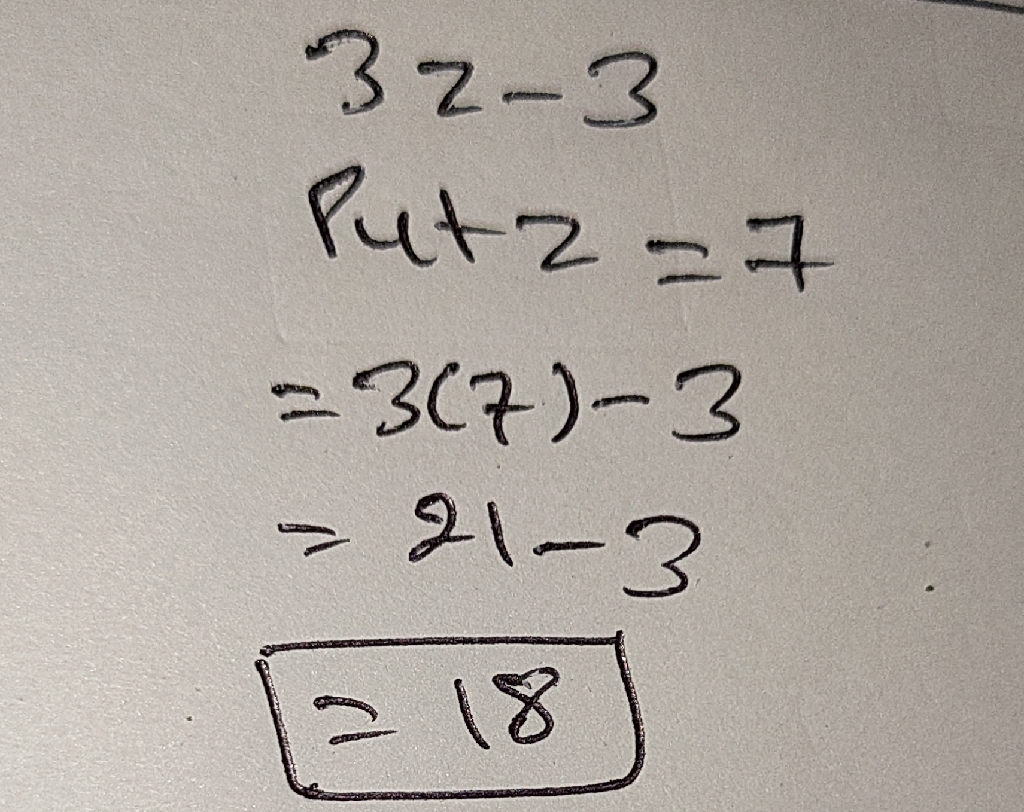 3z-3
Put z = 7
= 3(7)-3
= 21-3
= 18